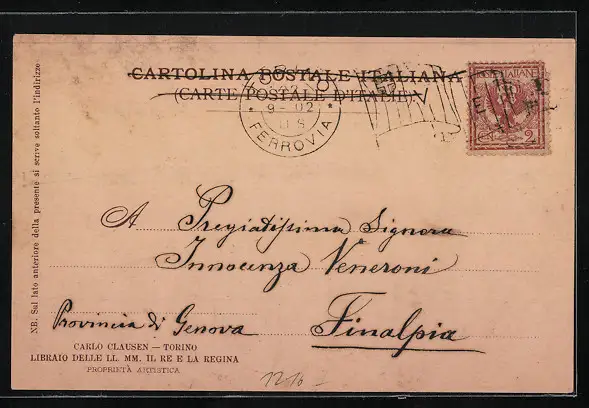 CARTOLINA POSTALE ITALIANA
(CARTE POSTALE D'ITALIE)
TORINO
9-02
FERROVIA
POSTE ITALIANE
2
NB. Sul lato anteriore della presente si scrive soltanto l'indirizzo
A Pregiatissima Signora
Innocenza Veneroni
Finalpia
Provincia di Genova
CARLO CLAUSEN — TORINO
LIBRAIO DELLE LL. MM. IL RE E LA REGINA
PROPRIETÀ ARTISTICA